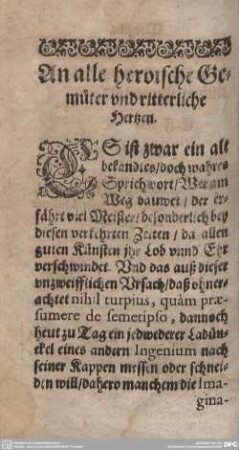 An alle heroische Ge-
müter vnd ritterliche
Hertzen.
ES ist zwar ein alt
bekandtes / doch wahres
Sprichwort / Wer am
Weg bauwet / der er-
fährt viel Meister / besonderlich bey
diesen verkehrten Zeiten / da allen
guten Künsten jhr Lob vnnd Ehr
verschwindet. Vnd das auß dieser
vnzweifflichen Vrsach / daß ohner-
achtet nihil turpius, quàm præ-
sumere de semetipso, dannoch
heut zu Tag ein jedwederer Ladün-
ckel eines andern Ingenium nach
seiner Kappen messen oder schnei-
den will / dahero manchem die Ima-
gina-